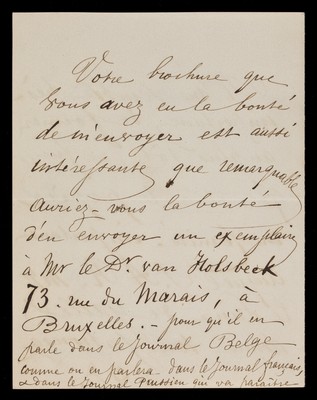 Votre brochure que
vous avez eu la bonté
de m'envoyer est aussi
intéressante que remarquable
Auriez-vous la bonté
d'en envoyer un exemplaire
à Mr le Dr. van Holsbeek
73. rue du Marais, à
Bruxelles. - pour qu'il en
parle dans le Journal Belge
comme on en parlera dans le Journal français,
& dans le Journal Prussien qui va paraître